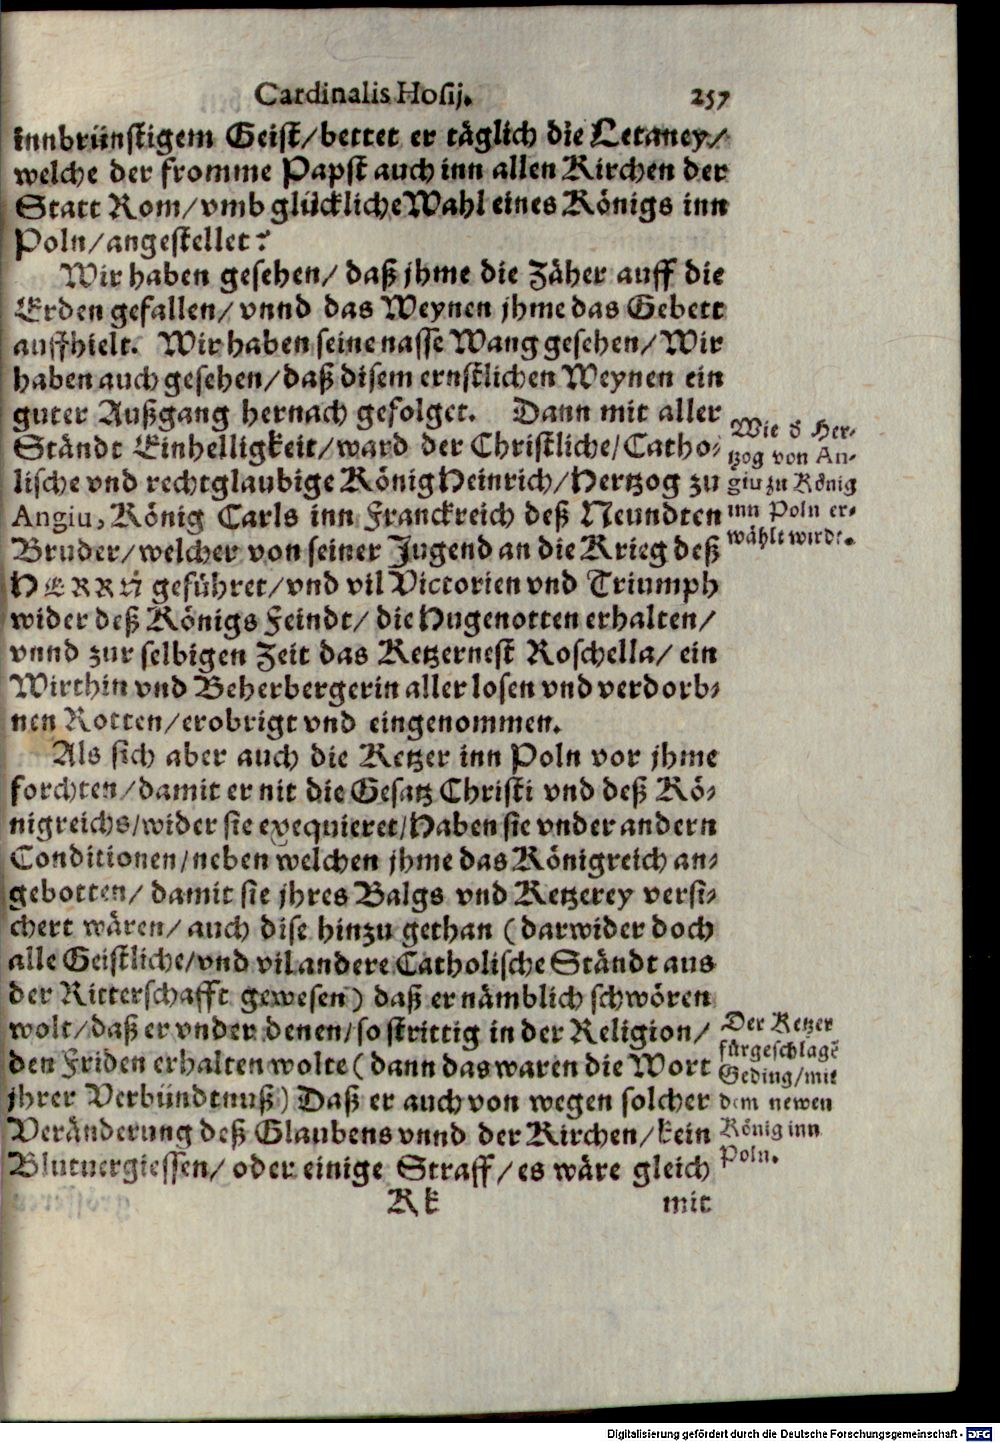 Cardinalis Hosij. 257
innbrünstigem Geist/bettet er täglich die Letaney/
welche der fromme Papst auch inn allen Kirchen der
Statt Rom/vmb glückliche Wahl eines Königs inn
Poln/angestellet?
Wir haben gesehen/ daß jhme die Zäher auff die
Erden gefallen/ vnnd das Weynen jhme das Gebett
auffhielt. Wir haben seine nasse Wang gesehen/Wir
haben auch gesehen/daß disem ernstlichen Weynen ein
guter Außgang hernach gefolget. Dann mit aller
Ständt Einhelligkeit/ward der Christliche/Catho-
lische vnd rechtglaubige König Heinrich/Hertzog zu
Angiu, König Carls inn Franckreich deß Neundten
Bruder/welcher von seiner Jugend an die Krieg deß
HERRN geführet/vnd vil Victorien vnd Triumph
wider deß Königs Feindt/ die Hugenotten erhalten/
vnnd zur selbigen Zeit das Ketzernest Roschella/ ein
Wirthin vnd Beherbergerin aller losen vnd verdorb-
nen Rotten/erobrigt vnd eingenommen.
Wie ð Her-
tzog von An-
giu zu König
inn Poln er-
wählt wirdt.
Als sich aber auch die Ketzer inn Poln vor jhme
forchten/damit er nit die Gesatz Christi vnd deß Kö-
nigreichs/wider sie exequieret/Haben sie vnder andern
Conditionen/neben welchen jhme das Königreich an-
gebotten/ damit sie jhres Balgs vnd Ketzerey versi-
chert wären/ auch dise hinzu gethan (darwider doch
alle Geistliche/vnd vil andere Catholische Ständt aus
der Ritterschafft gewesen) daß er nämblich schwören
wolt/daß er vnder denen/so strittig in der Religion/
den Friden erhalten wolte (dann das waren die Wort
jhrer Verbündtnuß) Daß er auch von wegen solcher
Veränderung deß Glaubens vnnd der Kirchen/kein
Blutuergiessen/ oder einige Straff/es wäre gleich
Der Ketzer
fürgeschlagē
Geding/mit
dem newen
König inn
Poln.
Kk mit
Digitalisierung gefördert durch die Deutsche Forschungsgemeinschaft - DFG